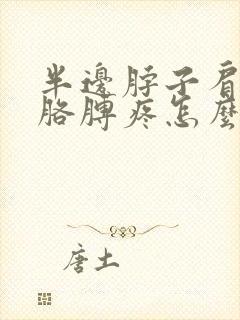 半邊脖子肩
胳膊疼怎麼
唐土